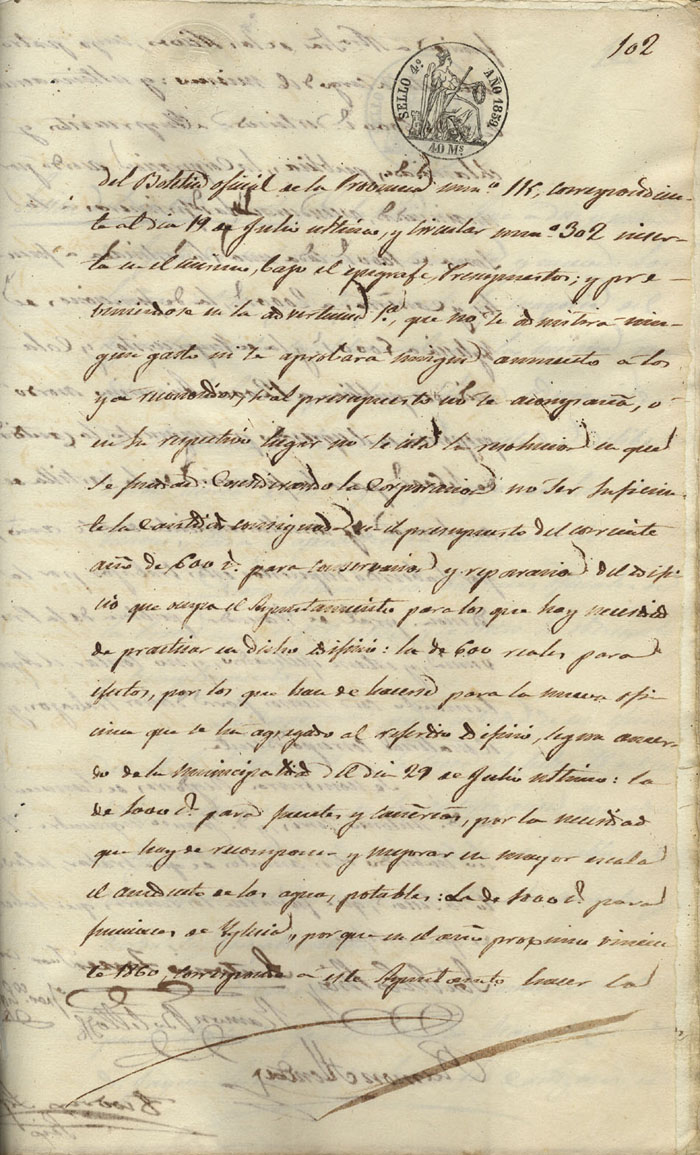 102
SELLO 4º AÑO 1859.
40 Ms
del Boletin oficial de la Provincia num.º 115, correspondien
te al dia 19 de Julio ultimo, y circular num.º 302 inser
ta en el mismo, bajo el epigrafe, Presupuestos; y pre
viniendose en la advertencia 1ª, que no se admitira nin
gun gasto ni se aprobara ningun aumento a los
ya reconocidos, si al presupuesto no se acompaña, o
en su respectivo lugar no se cita la resolucion en que
se fundad: Considerando la Corporacion no ser suficien
te la Cantidad consignada en el presupuesto del corriente
año de 600 r.s para conservacion y reparacion del edifi
cio que ocupa el Ayuntamiento para los que hay necesidad
de practicar en dicho edificio: la de 600 reales para
efectos, por los que han de hacerse para la nueva ofi
cina que se ha agregado al referido edificio, segun acuer
do de la municipalidad del dia 29 de Julio ultimo: la
de 1000 r.s para fuentes y cañerias, por la necesidad
que hay de recomponer y mejorar en mayor escala
el conducto de las aguas potables: La de 1000 r.s para
funciones de Yglesia, por que en el año proximo vinien
te 1860, corresponde a este Ayuntamiento hacer la